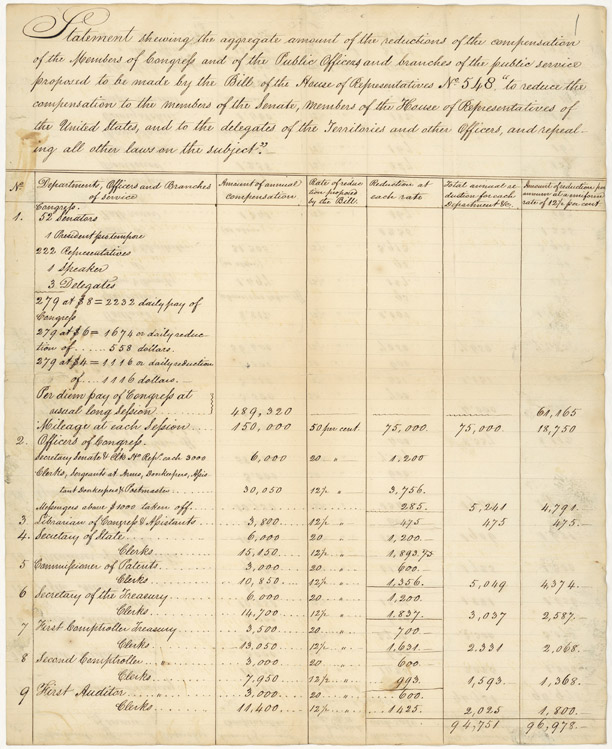 1
Statement shewing the aggregate amount of the reductions of the compensation
of the Members of Congress and of the Public Officers and branches of the public service
proposed to be made by the Bill of the House of Representatives No. 548 "to reduce the
compensation to the members of the Senate, members of the House of Representatives of
the United States, and to the delegates of the Territories and other Officers, and repeal-
ing all other laws on the subject".
No. Departments, Officers and Branches of service Amount of annual compensation Rate of reduction proposed by the Bill. Reduction at each rate Total annual reduction for each Department &c. Amount of reduction per annum at a uniform rate of 12½ per cent
Congress.
1. 52 Senators
1 President pro tempore
222 Representatives
1 Speaker
3 Delegates
279 at $8 = 2232 daily pay of
Congress
279 at $6 = 1674 or daily reduc-
tion of ...... 558 dollars.
279 at $4 = 1116 or daily reduction
of .... 1116 dollars.
Per diem pay of Congress at
usual long Session ........ 489,320 61,165
Mileage at each Session ... 150,000 50 per cent. 75,000. 75,000. 18,750
2. Officers of Congress.
Secretary Senate & Clk Ho. Reps. each 3000 6,000 20 " 1,200
Clerks, Sergeants at Arms, Doorkeepers, Assis
tant Doorkeepers & Postmaster 30,050 12½ " 3,756.
Messengers above $1000 taken off. 285. 5,241 4,791.
3 Librarian of Congress & Assistants 3,800 12½ " 475 475 475.
4. Secretary of State 6,000 20 " 1,200.
Clerks 15,150 12½ " 1,893.75
5 Commissioner of Patents 3,000 20 " 600.
Clerks 10,850 12½ " 1,356. 5,049 4,374.
6 Secretary of the Treasury 6,000 20 " 1,200.
Clerks 14,700 12½ " 1.837. 3,037 2,587.
7 First Comptroller Treasury 3,500 20 " 700.
Clerks 13,050 12½ " 1,631. 2.331 2,068.
8 Second Comptroller " 3,000 20 " 600
Clerks 7,950 12½ " 993. 1,593 1,368.
9 First Auditor " 3,000 20 " 600.
Clerks 11,400 12½ " 1425. 2,025 1,800.
94,751 96,978.